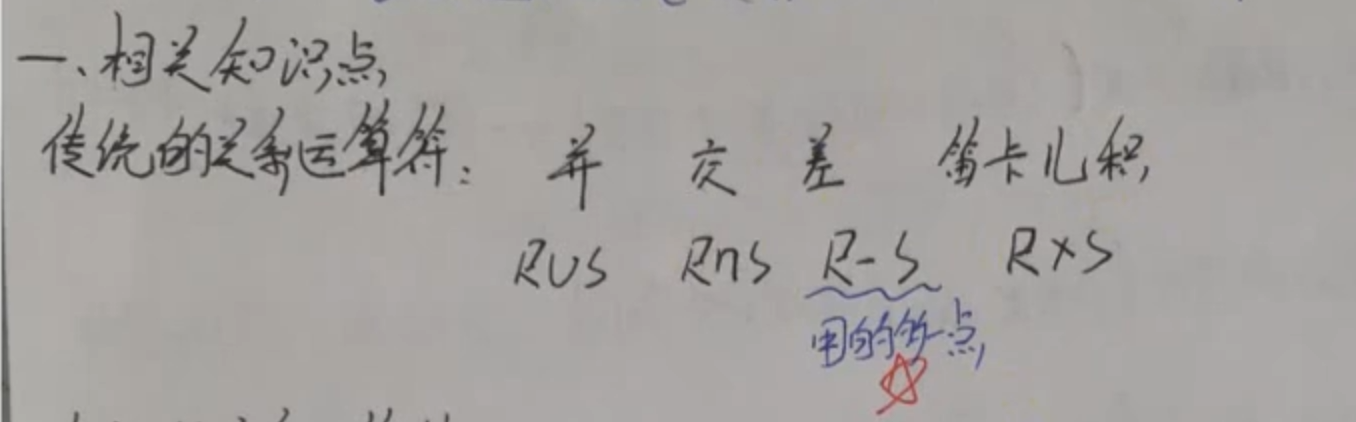 一、相关知识点
传统的关系运算符: 并 交 差 笛卡儿积
R∪S R∩S R-S R×S
用的多一点